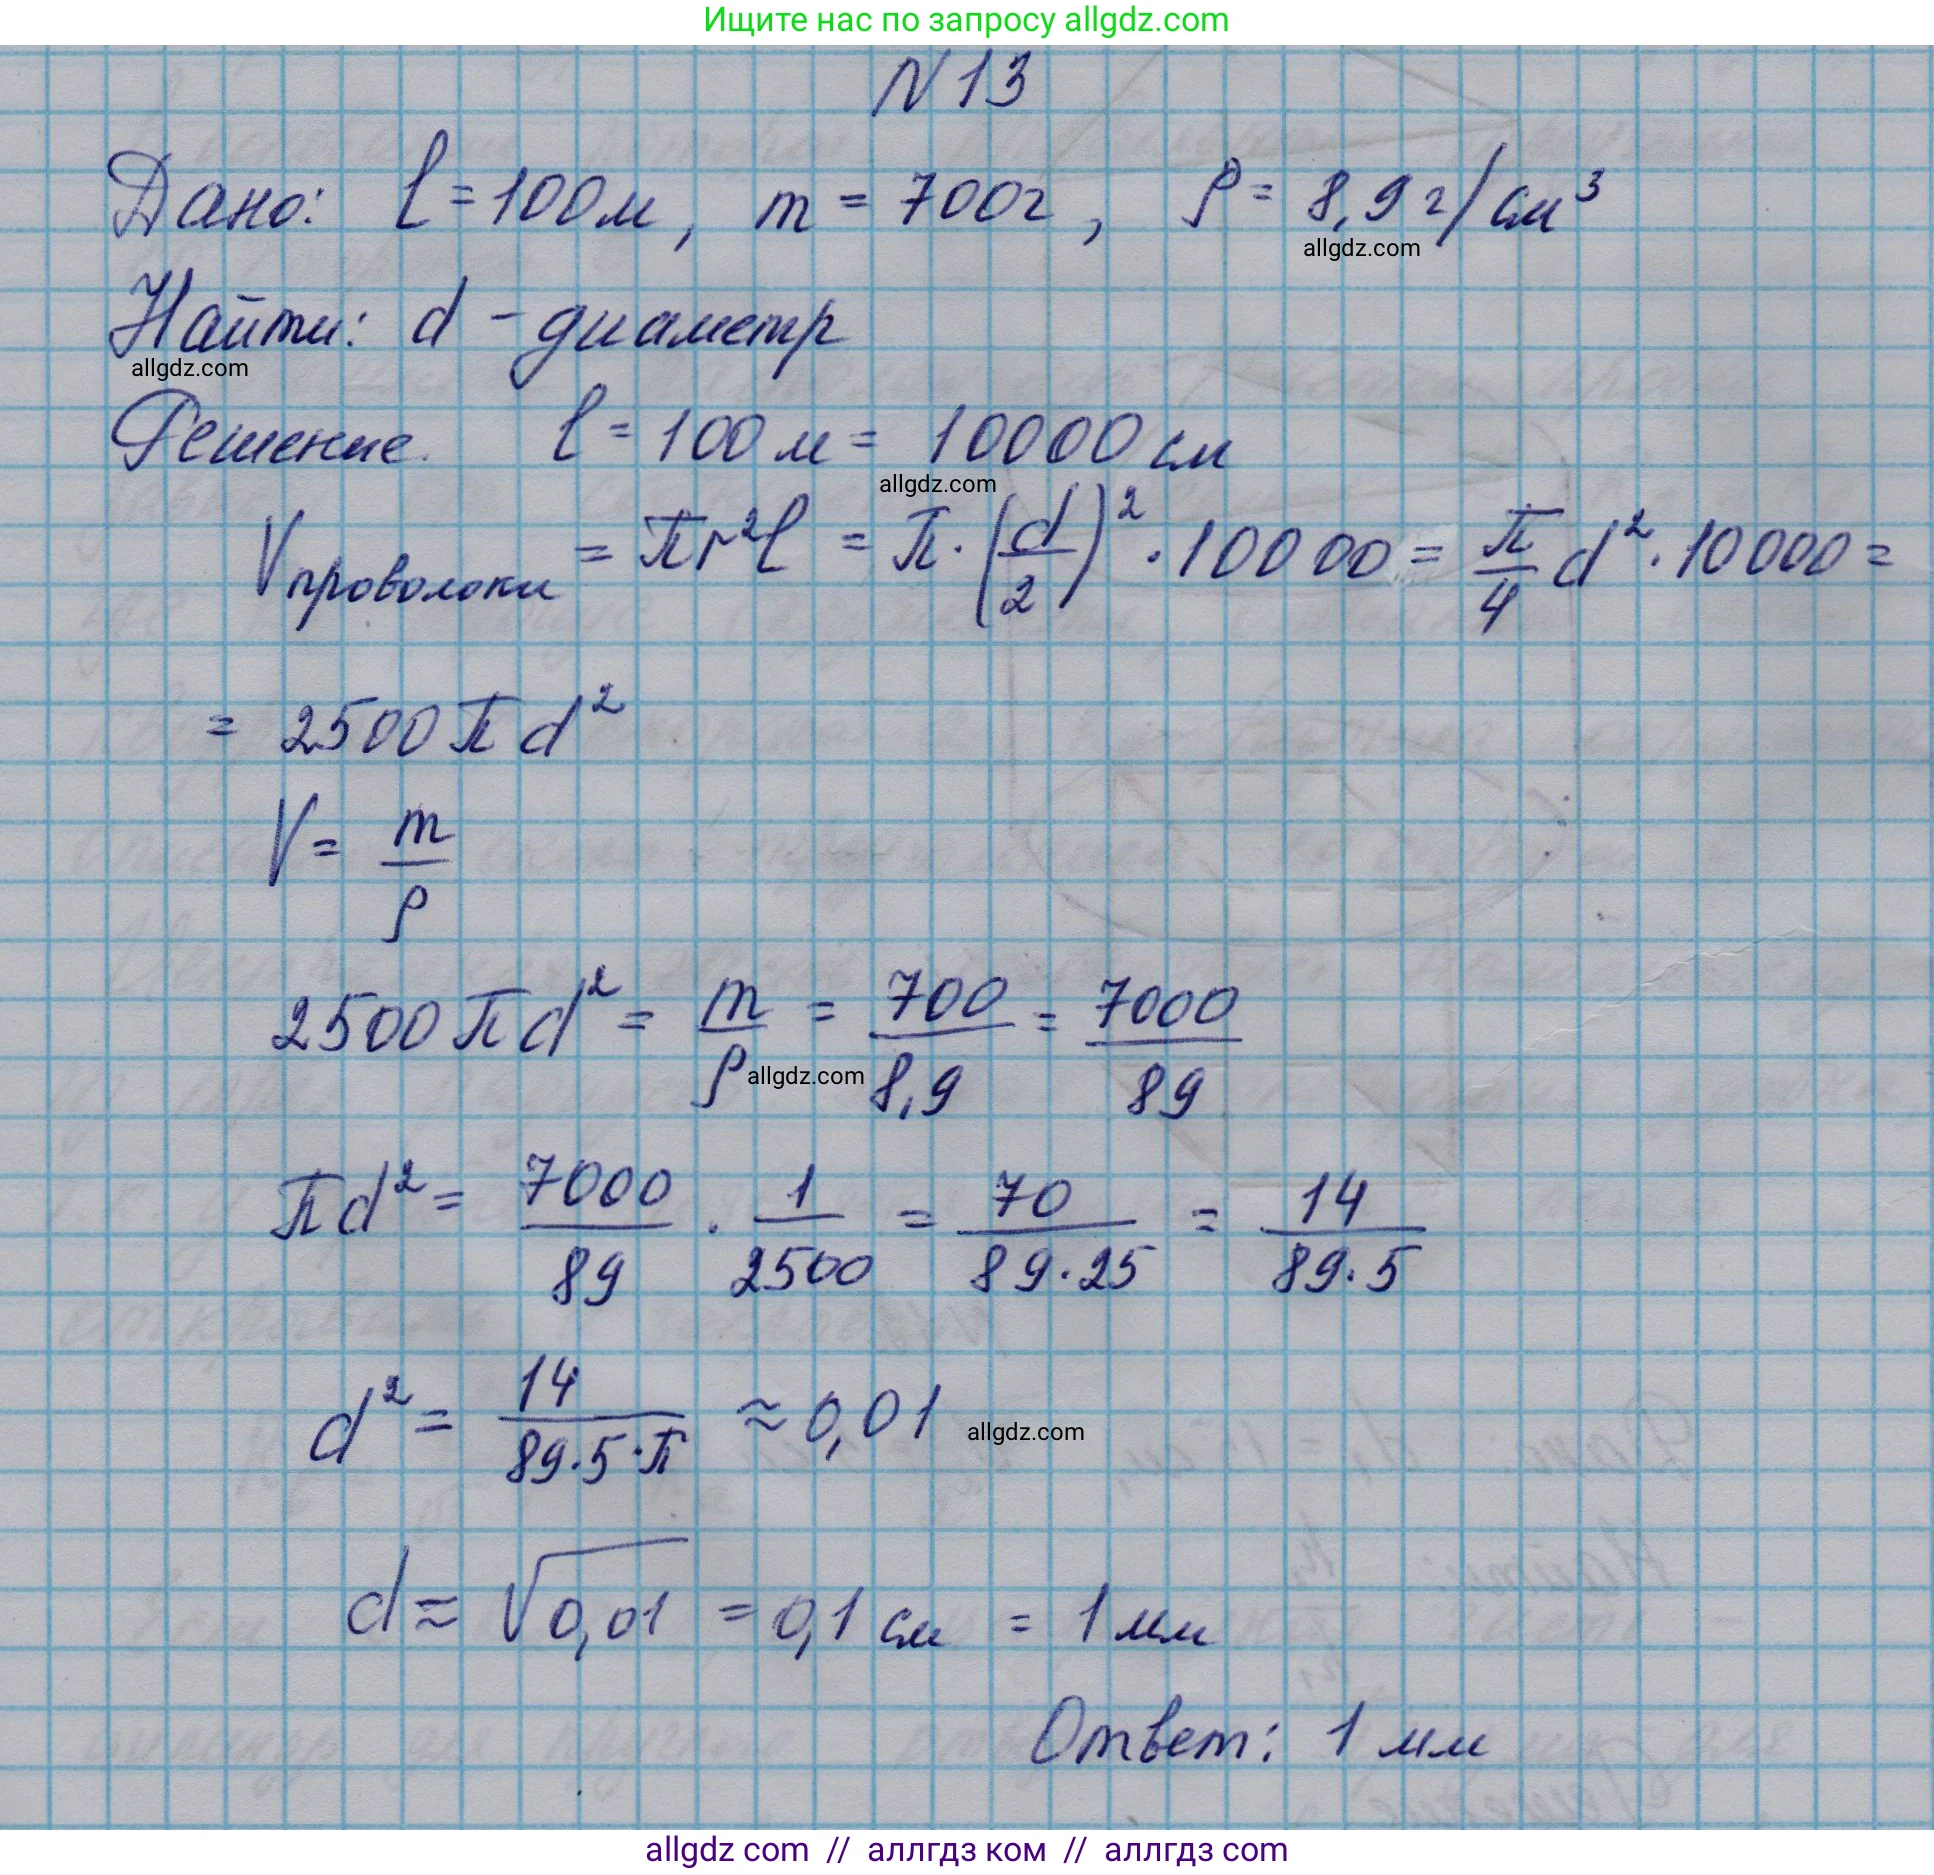 Ищите нас по запросу allgdz.com
N 13
Дано: l = 100 м, m = 700 г, ρ = 8,9 г/см³
allgdz.com
Найти: d - диаметр
allgdz.com
Решение. l = 100 м = 10000 см
allgdz.com
Vпроволоки = πr²l = π · (d/2)² · 10000 = π/4 d² · 10000 =
= 2500 π d²
V = m/ρ
2500 π d² = m/ρ = 700/8,9 = 7000/89
allgdz.com
πd² = 7000/89 · 1/2500 = 70/89·25 = 14/89·5
d² = 14/89·5·π ≈ 0,01
allgdz.com
d ≈ √0,01 = 0,1 см = 1 мм
Ответ: 1 мм
allgdz com // аллгдз ком // аллгдз com